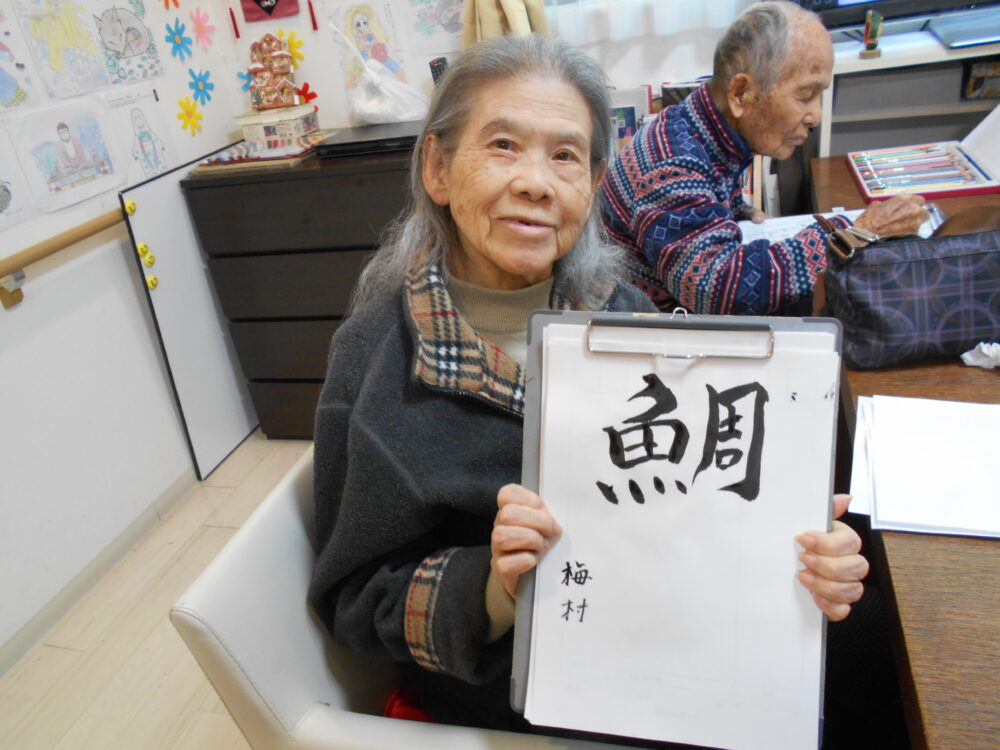 鯛
梅村